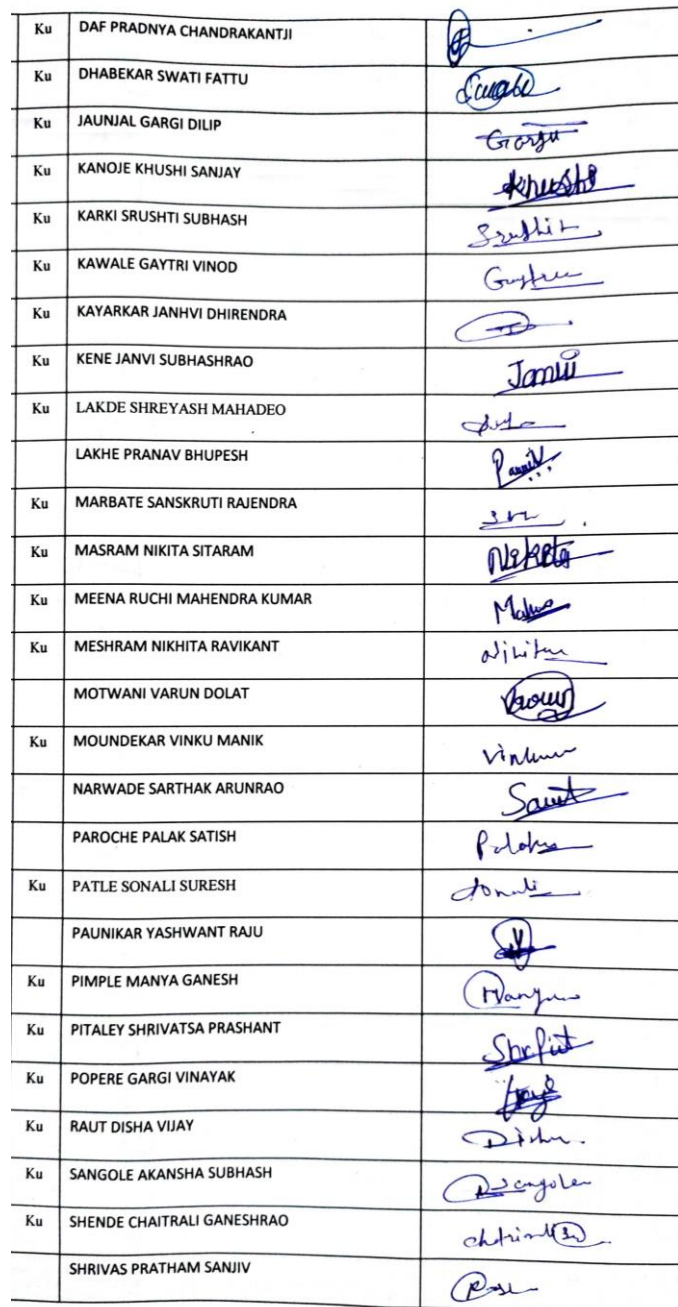 Ku DAF PRADNYA CHANDRAKANTJI
Ku DHABEKAR SWATI FATTU
Ku JAUNJAL GARGI DILIP Gargi
Ku KANOJE KHUSHI SANJAY Khushi
Ku KARKI SRUSHTI SUBHASH
Ku KAWALE GAYTRI VINOD
Ku KAYARKAR JANHVI DHIRENDRA
Ku KENE JANVI SUBHASHRAO Janvi
Ku LAKDE SHREYASH MAHADEO
LAKHE PRANAV BHUPESH
Ku MARBATE SANSKRUTI RAJENDRA
Ku MASRAM NIKITA SITARAM Nikita
Ku MEENA RUCHI MAHENDRA KUMAR
Ku MESHRAM NIKHITA RAVIKANT
MOTWANI VARUN DOLAT
Ku MOUNDEKAR VINKU MANIK
NARWADE SARTHAK ARUNRAO
PAROCHE PALAK SATISH
Ku PATLE SONALI SURESH Sonali
PAUNIKAR YASHWANT RAJU
Ku PIMPLE MANYA GANESH
Ku PITALEY SHRIVATSA PRASHANT
Ku POPERE GARGI VINAYAK
Ku RAUT DISHA VIJAY Disha
Ku SANGOLE AKANSHA SUBHASH
Ku SHENDE CHAITRALI GANESHRAO
SHRIVAS PRATHAM SANJIV